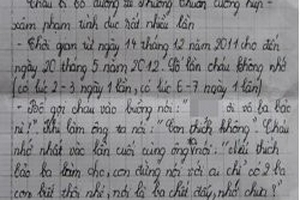 Cháu bị bố dượng là Thượng cưỡng hiếp -
xâm phạm tình dục rất nhiều lần
- Thời gian từ ngày 14 tháng 12 năm 2011 cho đến
ngày 20 tháng 5 năm 2012. Số lần cháu không nhớ
(có lúc 2-3 ngày 1 lần, có lúc 6-7 ngày 1 lần)
- Bố gọi cháu vào buồng nói: " đi với ba bảo
ni!". Khi làm ông ta nói: "Con thích không". Cháu
nhớ nhất vào lần cuối cùng ông nói: "nếu thích
bảo ba làm cho, con đừng nói với ai chỉ có 2 ba
con biết thôi nhé, nói là ba chết đấy, nhớ chưa?"